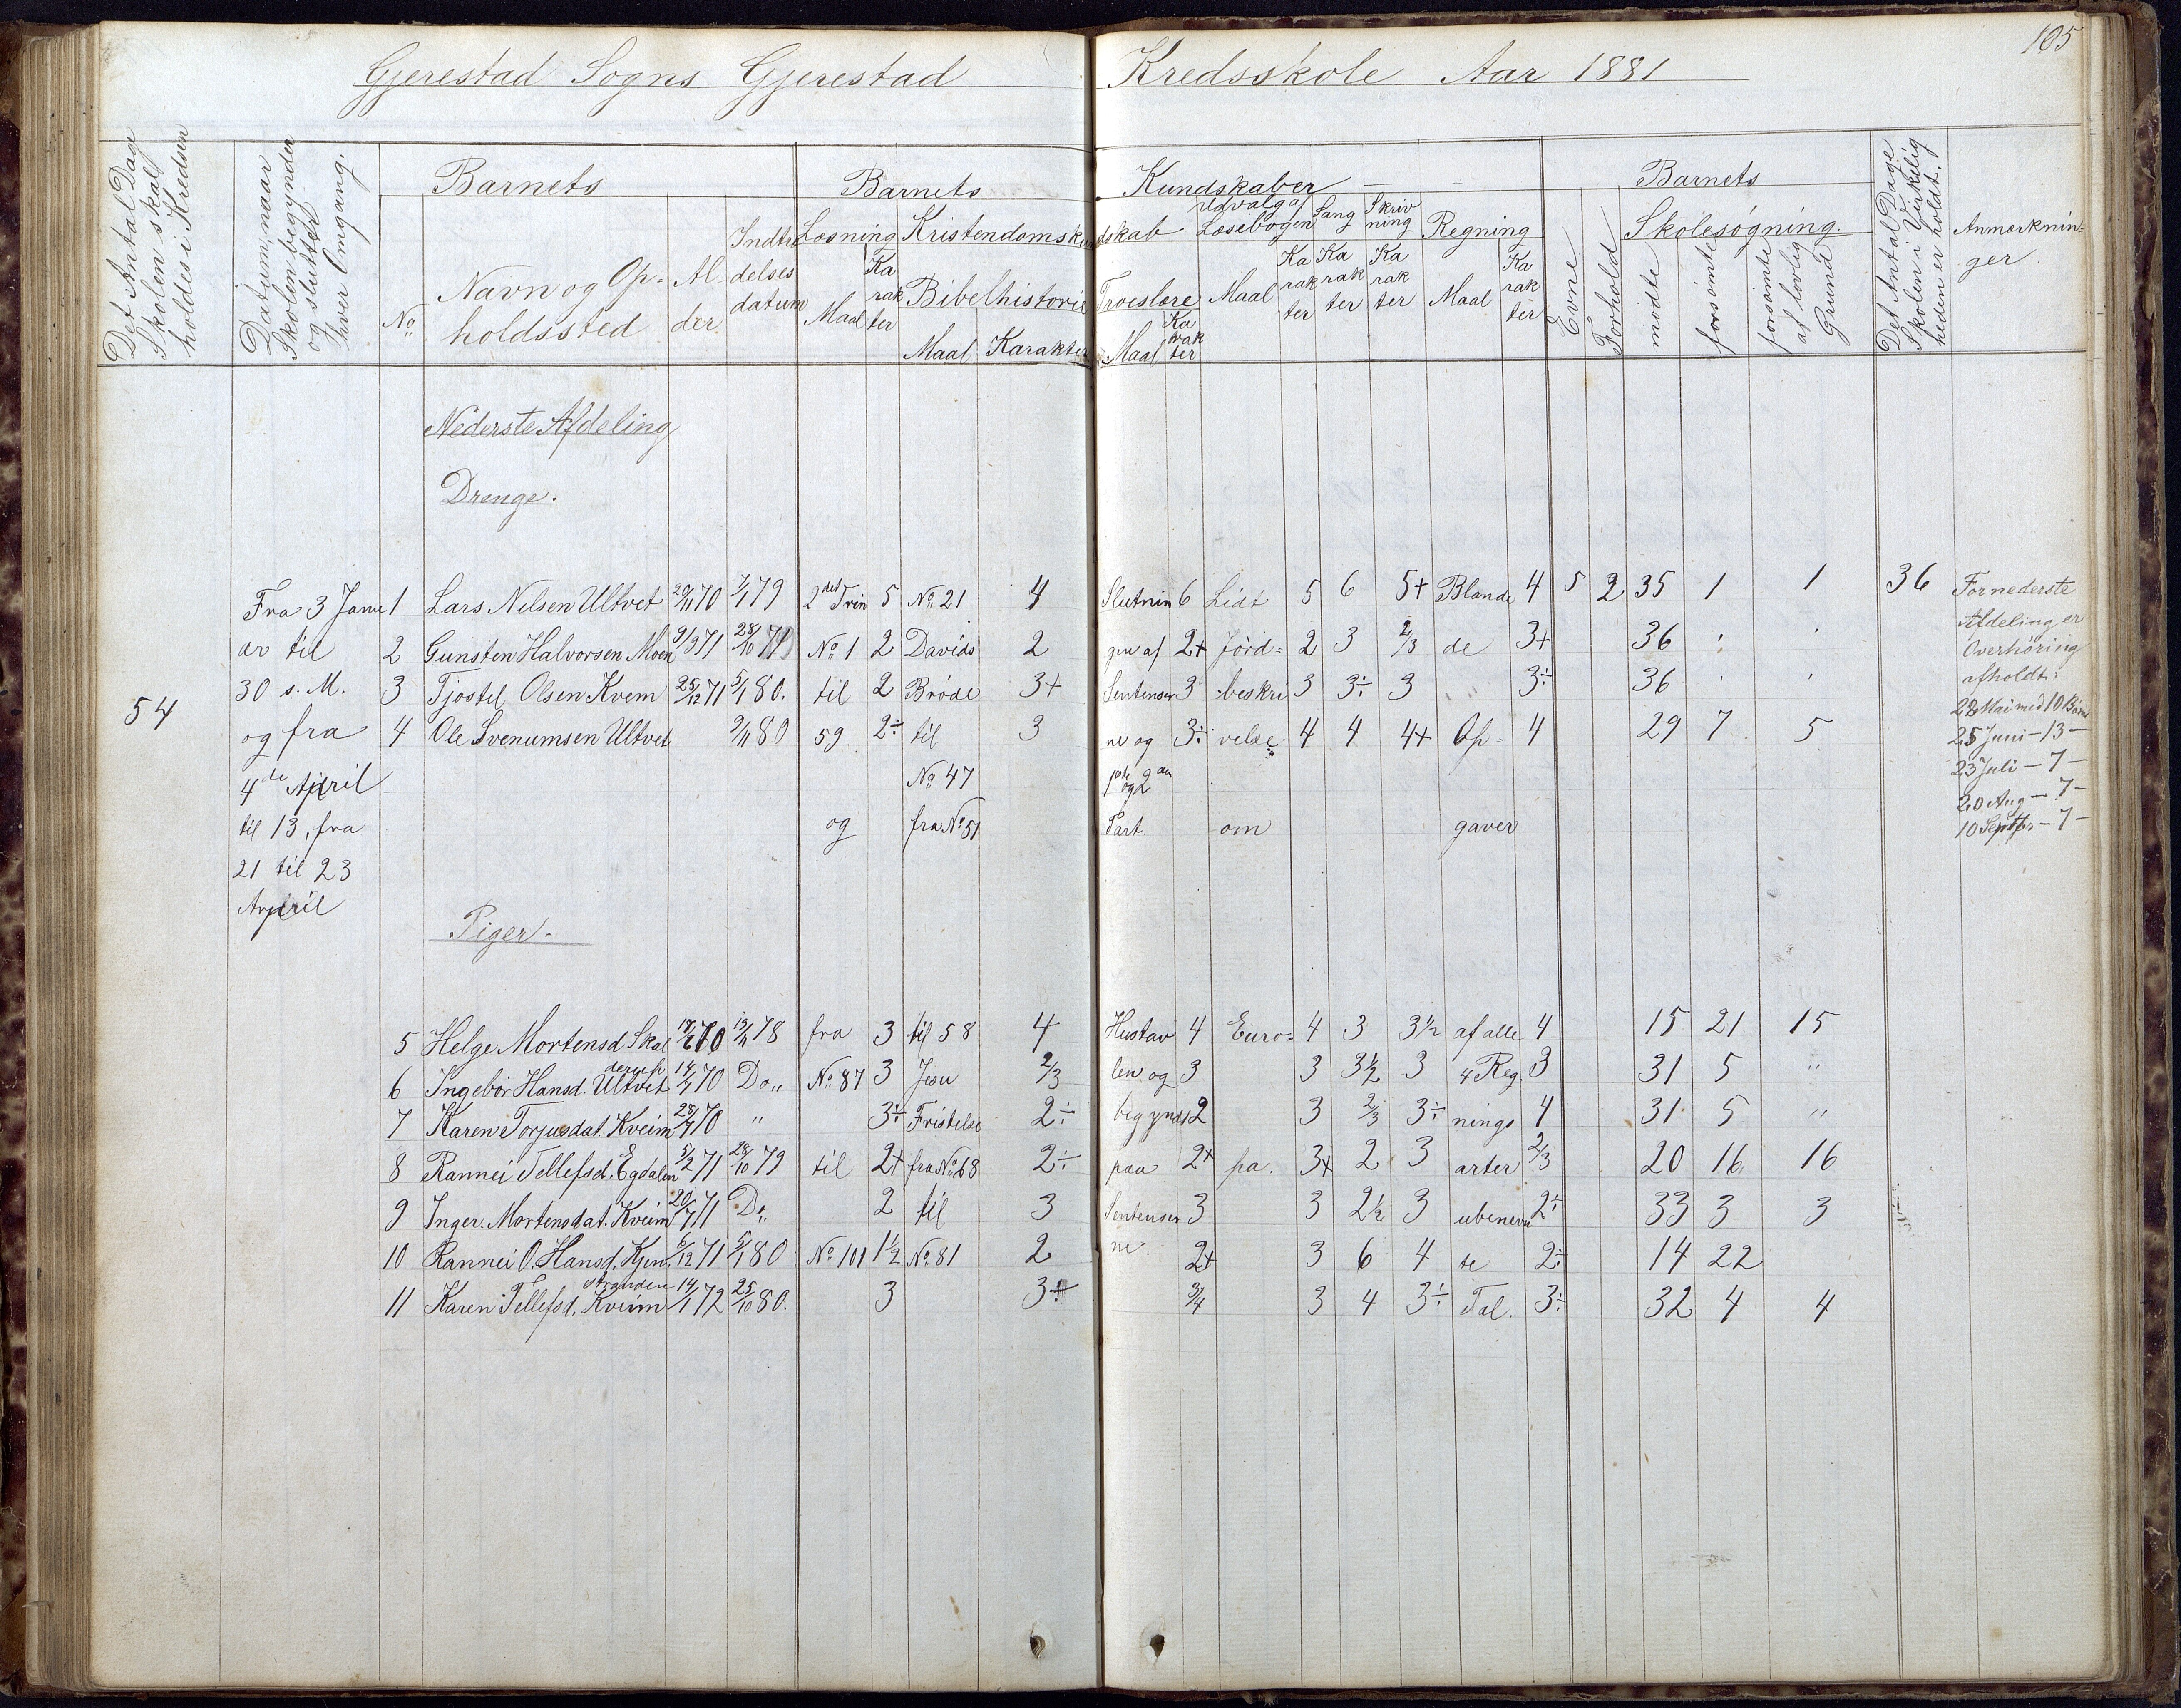 105
Gjerestad Sogns Gjerestad Kredsskole Aar 1881
Det Antal Dage Skolen skal holdes i Kredsen
Datum, naar Skolen begynder og slutter hver Omgang.
Barnets
No
Navn og Opholdssted
Alder
Indtrædelsesdatum
Barnets Kundskaber
Læsning
Maal
Karakter
Kristendomskundskab
Bibelhistorie
Maal Karakter
Troeslære
Maal Karakter
Udvalg af Læsebogen
Maal Karakter
Sang
Karakter
Skrivning
Karakter
Regning
Maal Karakter
Barnets
Evne
Forhold
Skolesøgning.
mødte
forsømte
forsømte af lovlig Grund
Det Antal Dage Skolen i Virkelig heden er holdt.
Anmærkninger.
Nederste Afdeling
Drenge.
Fra 3 Janu 1 Lars Nilsen Ultvet 20/11 70 7/1 79 2det Trin 5 No 21 4 Slutnin 6 Lidt 5 6 5+ Blande 4 5 2 35 1 1 36 For nederste
ar til 2 Gunsten Halvorsen Moen 9/9 71 28/10 79 No 1 2 Davids 2 gen af 2+ Jord= 2 3 2/3 de 3+ 36 Afdeling er
Overhöring
30 s. M. 3 Tjostel Olsen Kveim 25/12 71 5/1 80. til 2 Bröde 3+ Sentenser 3 beskri 3 3÷ 3 " 3÷ 36 afholdt:
54
28 Mai med 10 Börn
og fra 4 Ole Svenumsen Ultvet 9/11 80 59 2÷ til 3 ne og 3÷ velse 4 4 4+ Op= 4 29 7 5 25 Juni - 13 -
4de April No 47 1ste og 2den 23 Juli - 7 -
20 Aug - 7 -
til 13, fra og fra No 51 Part. om gaver 10 Septbr - 7 -
21 til 23
April
Piger.
5 Helge Mortensd Skal 70 13/11 78 fra 3 til 58 4 Hustav 4 Euro= 4 3 3½ af alle 4 15 21 15
6 Ingebor Hansd. Ultvet 70 Do,, No 87 3 Jesu 2/3 len og 3 3 3½ 3 4 Reg. 3 31 5 "
7 Karen Torjusdat. Kveim 70 " 3÷ Fristelse 2÷ begynd 2 3 2/3 3÷ nings 4 31 5 "
8 Rannei Tellefsd. Egdalen 5/2 71 28/10 79 til 2+ fra No 68 2÷ paa 2+ pa. 3+ 2 3 arter 2/3 20 16 16
9 Inger. Mortensdat. Kveim 20/7 71 Do,, 2 til 3 Sentenser 3 3 2½ 3 ubenevn 2÷ 33 3 3
10 Rannei O. Hansd. Kjen 6/12 71 5/1 80 No 101 1½ No 81 2 ne. 2+ 3 6 4 te 2÷ 14 22
stranden
11 Karen Tellefsd. Kveim 14/1 72 25/10 80. 3 3 3/4 3 4 3÷ Tal. 3÷ 32 4 4